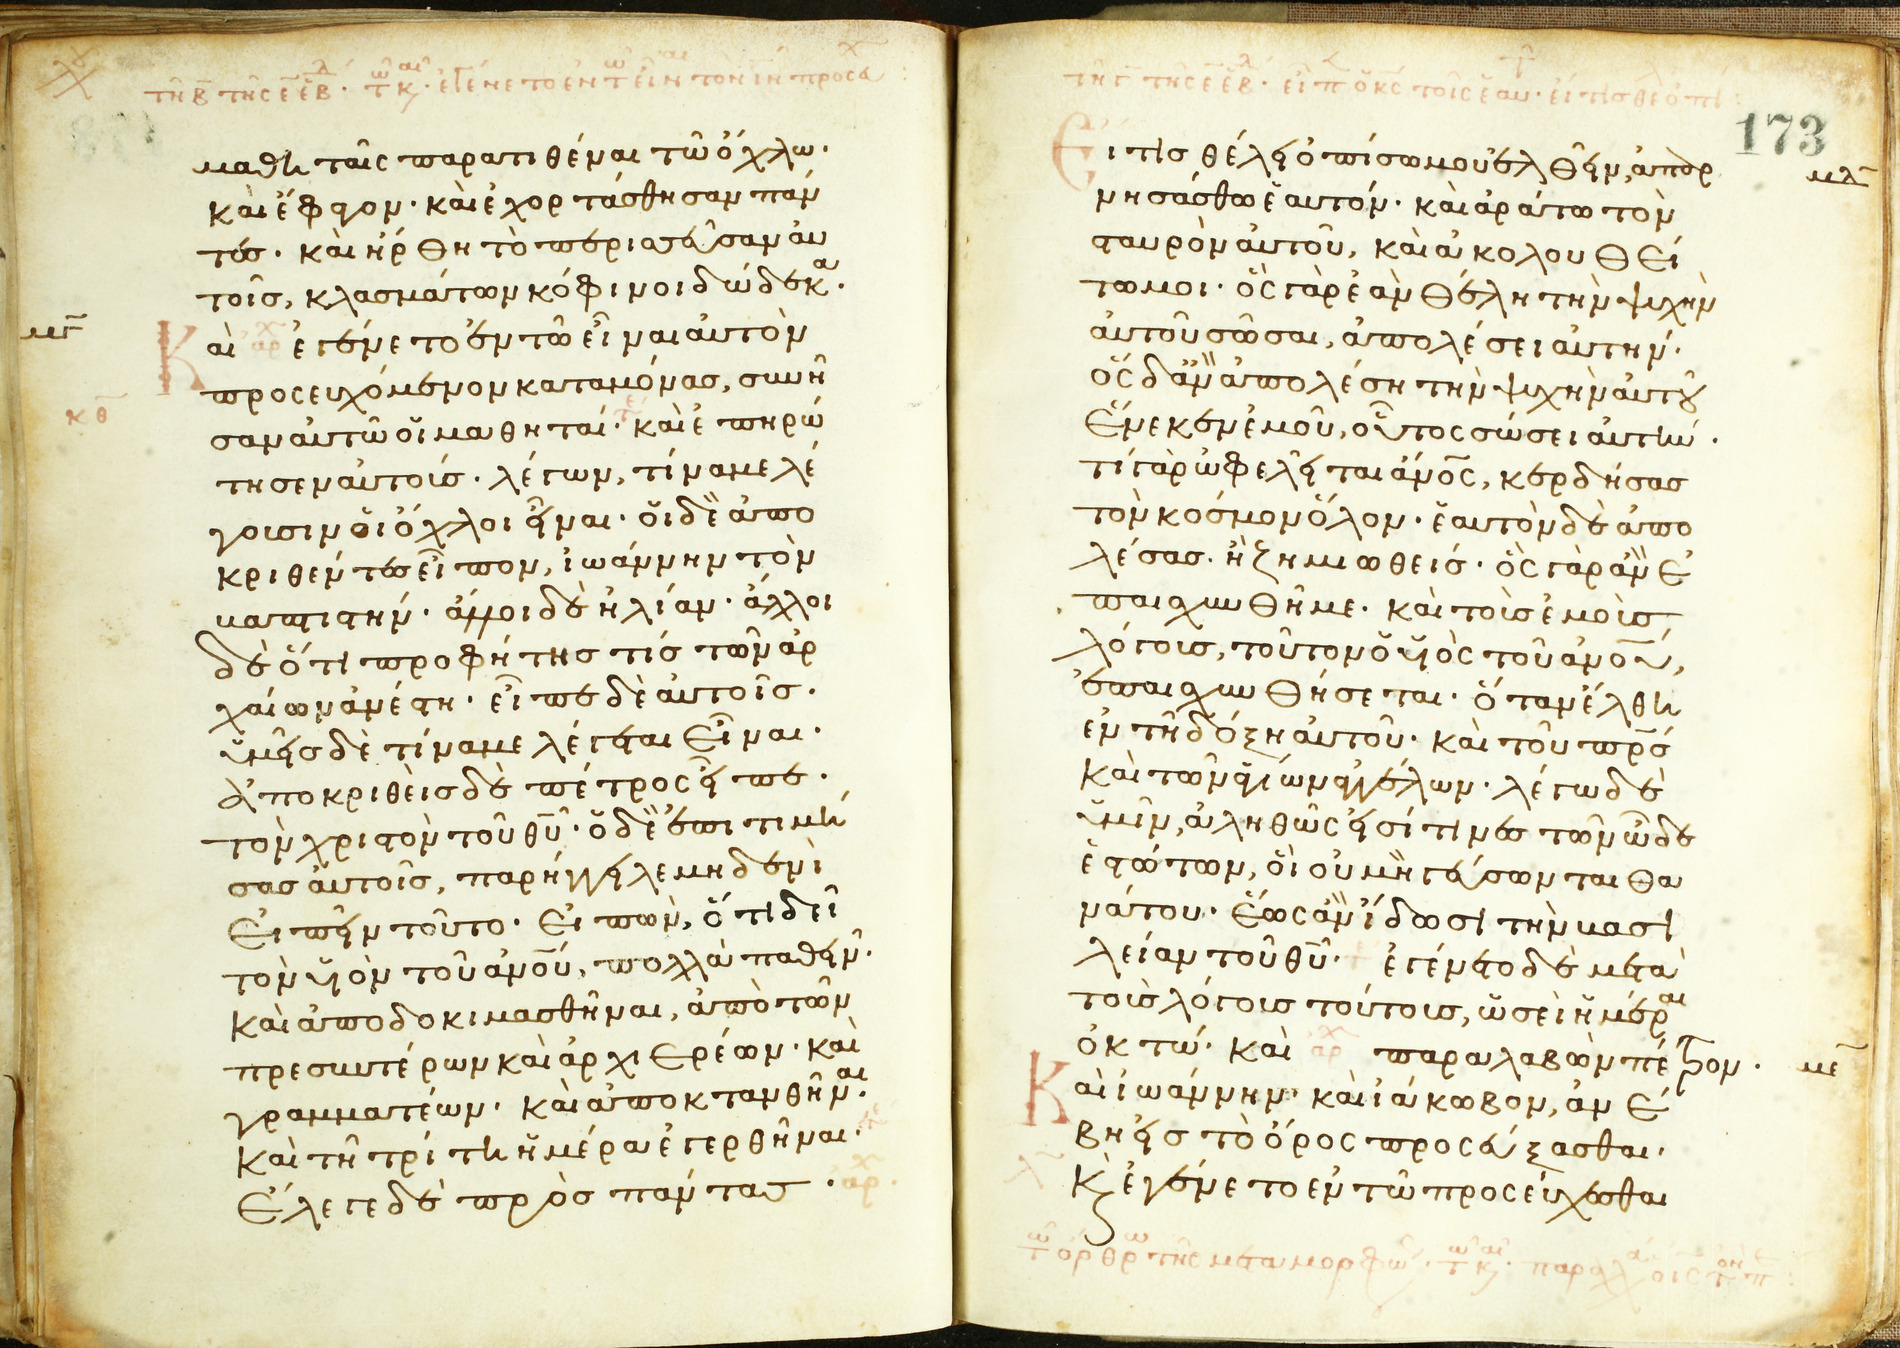 μαθηταῖς παρατιθέναι τῶ ὄχλω·
καὶ ἔφαγον· καὶ ἐχορτάσθησαν πάν
τες· καὶ ἤρθη τὸ περισσεῦσαν αὐ
τοῖς, κλασμάτων κόφινοι δώδεκα·
Καὶ ἐγένετο ἐν τῶ εἶναι αὐτὸν
προσευχόμενον καταμόνας, συνῆ
σαν αὐτῶ οἱ μαθηταί· καὶ ἐπηρώ
τησεν αὐτοίς· λέγων, τίνα με λέ
γουσιν οἱ ὄχλοι εἶναι· οἱ δὲ ἀπο
κριθέντες εἶπον, ἰωάννην τὸν
βαπτιστήν· ἄλλοι δὲ ἠλίαν· ἄλλοι
δὲ ὅτι προφήτης τίς τῶν ἀρ
χαίων ἀνέστη· εἶπε δὲ αὐτοῖς·
ὑμεῖς δὲ τίνα με λέγεται εἶναι·
ἀποκριθεὶς δὲ πέτρος εἶπε·
τὸν χριστὸν τοῦ θῦ· ὁ δὲ ἐπιτιμή
σας αὐτοῖς, παρήγγειλε μηδενὶ
εἰπεῖν τοῦτο· εἰπὼν, ὅτι δεῖ
τὸν υἱὸν τοῦ ἀνοῦ, πολλὰ παθεῖν·
καὶ ἀποδοκιμασθῆναι, ἀπὸ τῶν
πρεσβυτέρων καὶ ἀρχιερέων· καὶ
γραμματέων· καὶ ἀποκτανθῆναι·
καὶ τῆ τρίτη ἡμέρα ἐγερθῆναι·
Ἔλεγε δὲ πρὸς πάντας·
173
Εἴ τις θέλει ὀπίσω μου ἐλθεῖν, ἀπαρ
νησάσθω ἑαυτόν· καὶ ἀράτω τὸν
σταυρὸν αὐτοῦ, καὶ ἀκολουθεί
τω μοι· ὃς γὰρ ἐὰν θέλη τὴν ψυχὴν
αὐτοῦ σῶσαι, ἀπολέσει αὐτήν·
ὃς δ' ἂν ἀπολέση τὴν ψυχὴν αὐτοῦ
ἕνεκεν ἐμοῦ, οὗτος σώσει αὐτήν·
τί γὰρ ὠφελεῖται ἄνος, κερδήσας
τὸν κόσμον ὅλον· ἑαυτὸν δὲ ἀπο
λέσας· ἢ ζημιωθείς· ὃς γὰρ ἂν ἐ
παισχυνθῆ με· καὶ τοὺς ἐμοὺς
λόγους, τοῦτον ὁ υἱὸς τοῦ ἀνοῦ,
ἐπαισχυνθήσεται· ὅταν ἔλθη
ἐν τῆ δόξη αὐτοῦ· καὶ τοῦ πρς
καὶ τῶν ἁγίων ἀγγέλων· λέγω δὲ
ὑμῖν, ἀληθῶς εἰσί τινες τῶν ὧδε
ἑστώτων, οἳ οὐ μὴ γεύσωνται θα
νάτου· ἕως ἂν ἴδωσι τὴν βασι
λείαν τοῦ θῦ· ἐγένετο δὲ μετὰ
τοὺς λόγους τούτους, ὡσεὶ ἡμέραι
ὀκτώ· καὶ παραλαβὼν πέτρον·
Καὶ ἰωάννην· καὶ ἰάκωβον, ἀνέ
βη εἰς τὸ ὄρος προσεύξασθαι·
Κὶ ἐγένετο ἐν τῶ προσεύχεσθαι